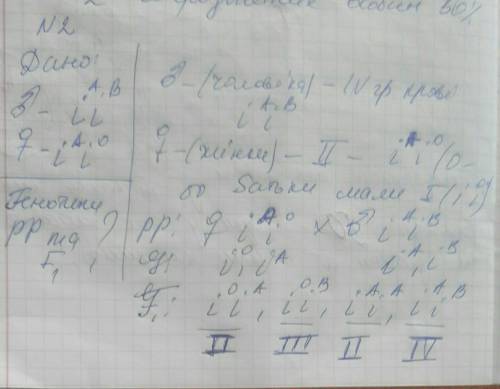 N2
Дано:
♂ - i^A i^B
♀ - i^A i^O
Генотипи
PP та
F₁ ?
♂ - (чоловіка) - IV гр крові
i^A i^B
♀ - (жінки) - II - i^A i^O (0 -
бо батьки мали I (i i^O)
PP: ♀ i^A i^O x ♂ i^A i^B
g: i^O, i^A i^A, i^B
F₁: i^O i^A, i^O i^B, i^A i^A, i^A i^B
II III II IV